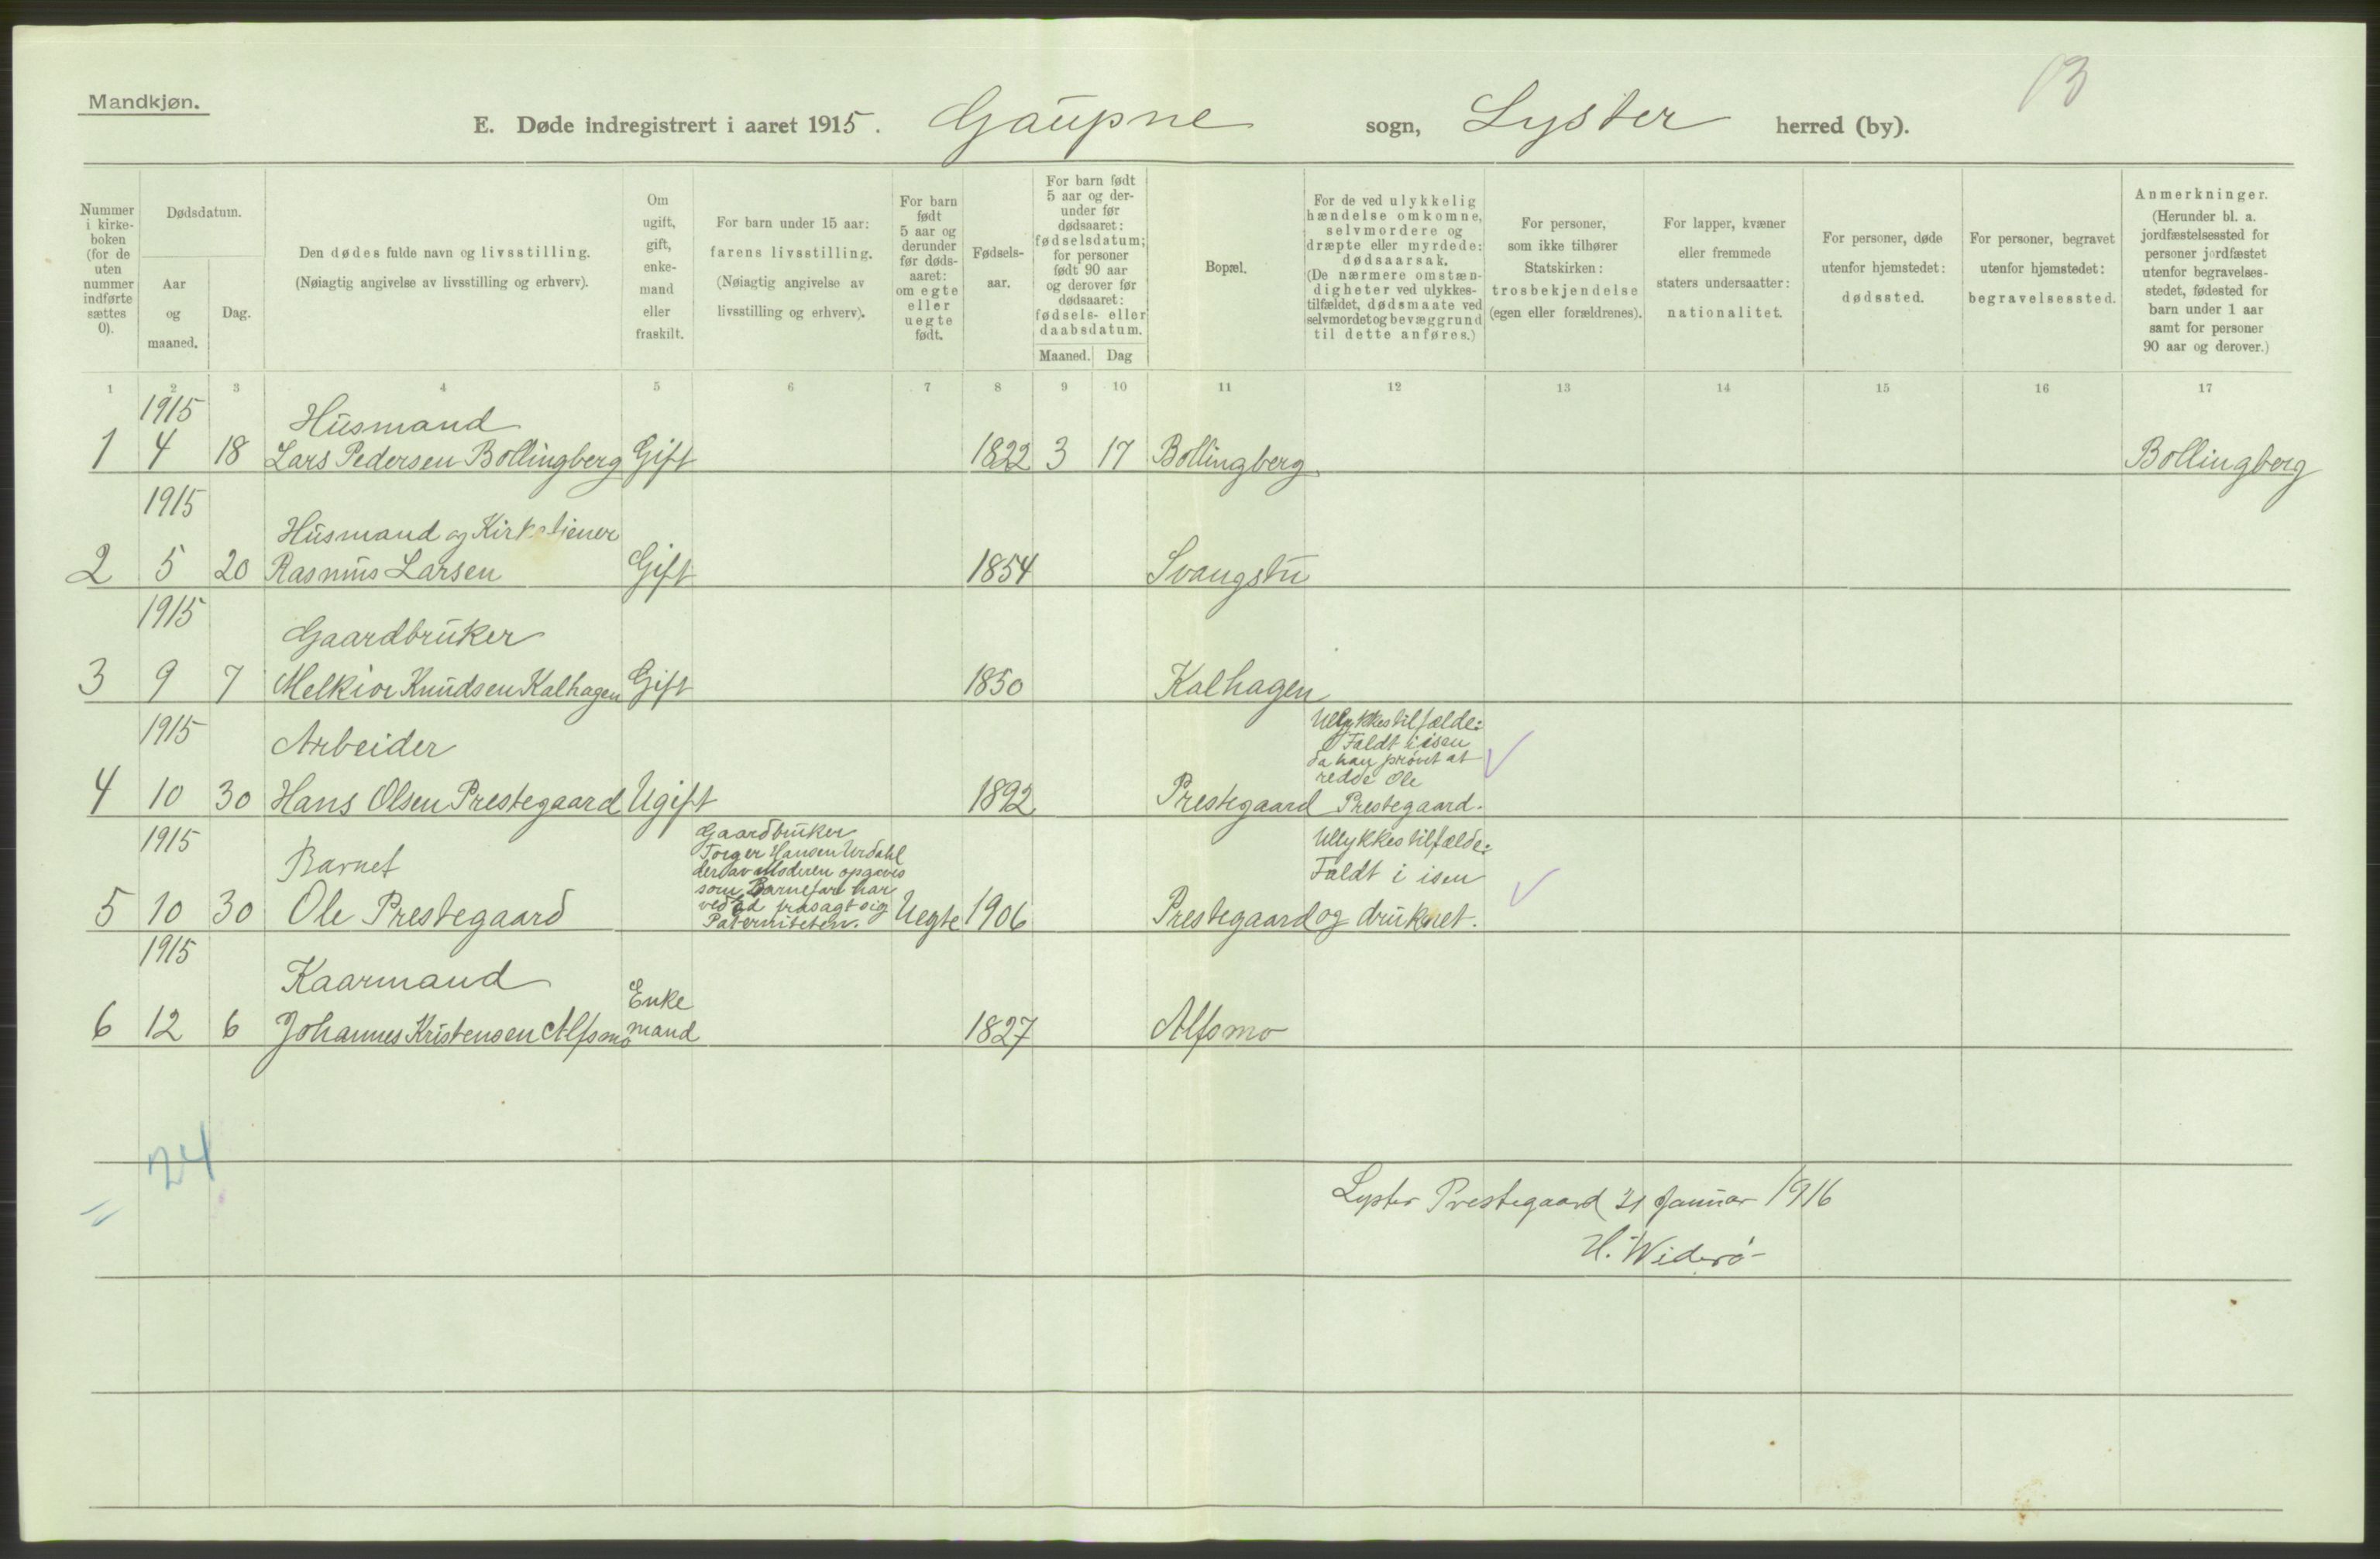 Mandkjøn.
13
E. Døde indregistrert i aaret 1915. Gaupne sogn, Lyster herred (by).
Nummer i kirke-boken (for de uten nummer indførte sættes 0).
Dødsdatum.
Aar og maaned.
Dag.
Den dødes fulde navn og livsstilling.
(Nøiagtig angivelse av livsstilling og erhverv).
Om ugift, gift, enke-mand eller fraskilt.
For barn under 15 aar: farens livsstilling.
(Nøiagtig angivelse av livsstilling og erhverv).
For barn født 5 aar og derunder før døds-aaret: om egte eller uegte født.
Fødsels-aar.
For barn født 5 aar og der-under før dødsaaret: fødselsdatum; for personer født 90 aar og derover før dødsaaret: fødsels- eller daabsdatum.
Maaned. Dag
Bopæl.
For de ved ulykkelig hændelse omkomne, selvmordere og dræpte eller myrdede: dødsaarsak.
(De nærmere omstæn-digheter ved ulykkes-tilfældet, dødsmaate ved selvmordet og bevæggrund til dette anføres.)
For personer, som ikke tilhører Statskirken: trosbekjendelse (egen eller forældrenes).
For lapper, kvæner eller fremmede staters undersaatter: nationalitet.
For personer, døde utenfor hjemstedet: dødssted.
For personer, begravet utenfor hjemstedet: begravelsessted.
Anmerkninger.
(Herunder bl. a. jordfæstelsessted for personer jordfæstet utenfor begravelses-stedet, fødested for barn under 1 aar samt for personer 90 aar og derover.)
1 2 3 4 5 6 7 8 9 10 11 12 13 14 15 16 17
1915 Husmand
1 4 18 Lars Pedersen Bollingberg Gift 1822 3 17 Bollingberg Bollingberg
1915
Husmand og Kirketjener
2 5 20 Rasmus Larsen Gift 1854 Svangstu
1915
Gaardbruker
3 9 7 Melkior Knudsen Kalhagen Gift 1850 Kalhagen
1915 Arbeider
Ulykkestilfælde:
Faldt i isen
da han prøvet at
redde Ole
4 10 30 Hans Olsen Prestegaard Ugift 1892 Prestegaard Prestegaard.
1915 Barnet
Gaardbruker
Torger Hansen Urdahl
der av Moderen opgaves
som Barnefar har
ved Ed frasagt sig
Paterniteten.
Ullykkestilfælde:
Faldt i isen
5 10 30 Ole Prestegaard Uegte 1906 Prestegaard og druknet.
1915
Kaarmand
Enke
6 12 6 Johannes Kristensen Alfsmo mand 1827 Alfsmo
24
Lyster Prestegaard 21 Januar 1916
H. Widerø